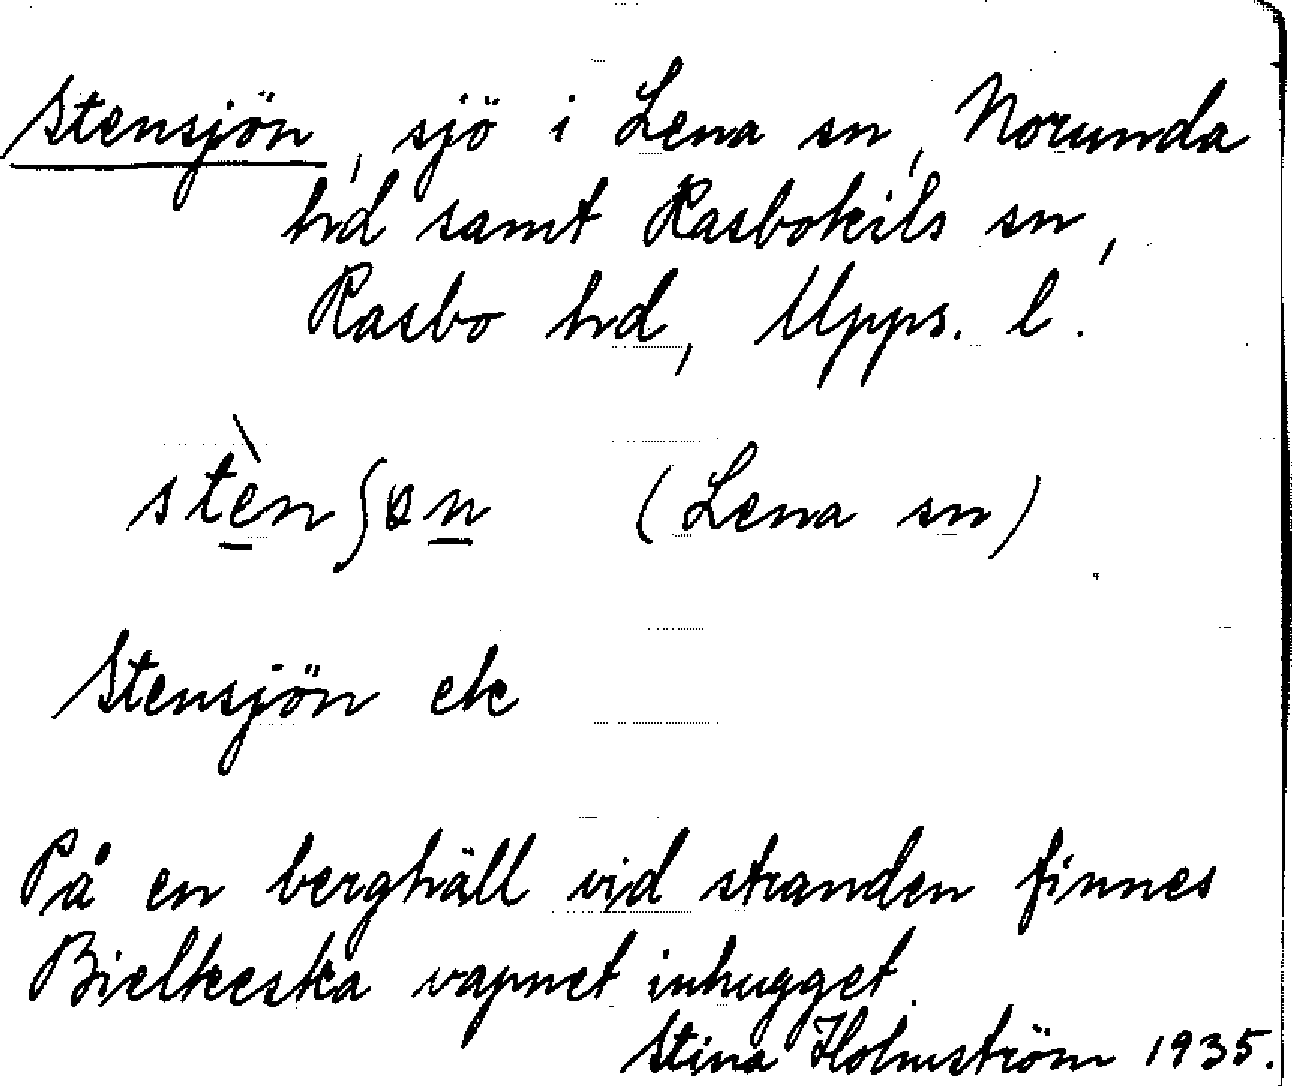 Stensjön, sjö i Lena sn, Norunda
hd samt Rasbokils sn,
Rasbo hd, Upps. l.
stènʃøn (Lena sn)
Stensjön ek
På en berghäll vid stranden finnes
Bielkeska vapnet inhugget.
Stina Holmström 1935.